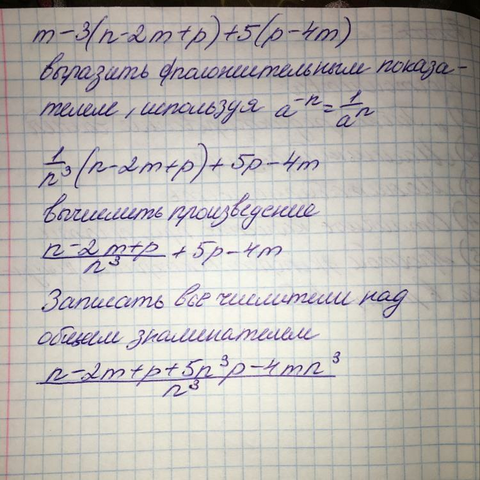 m-3(n-2m+p)+5(p-4m)
выразить с положительным показа-
телем, используя a^-n = 1/a^n
1/n^3 (n-2m+p)+5p-4m
вычислить произведение
(n-2m+p)/n^3 + 5p-4m
Записать все числители над
общем знаминателем
(n-2m+p+5n^3p-4mn^3)/n^3